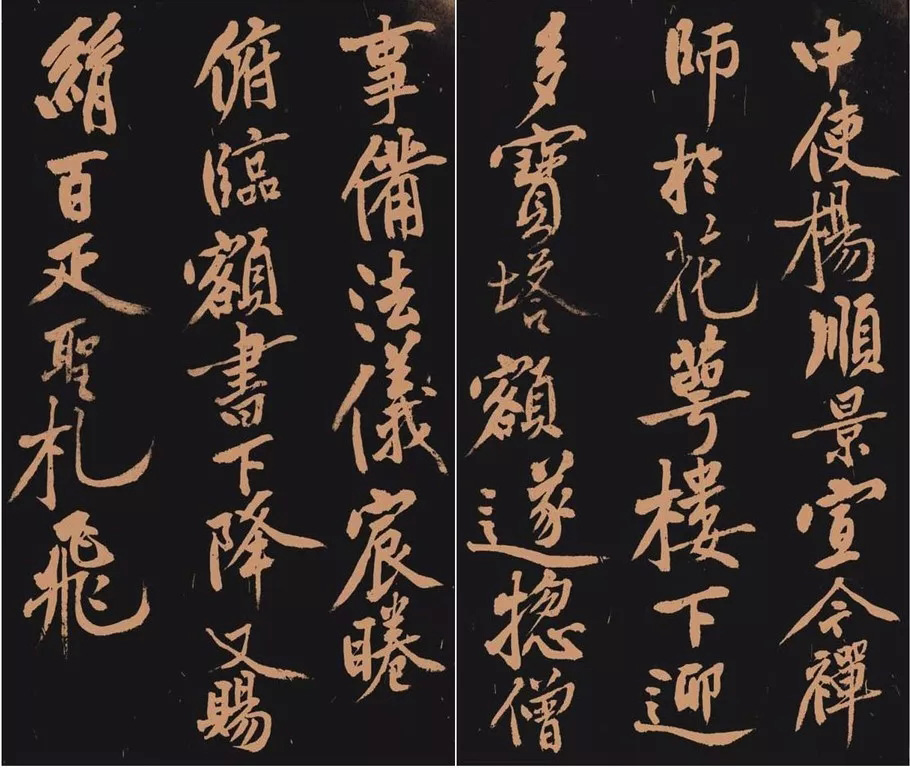 中使楊順景宣令禪
師於花萼樓下迎
多寶塔額遂惣僧
事備法儀宸睠
俯臨額書下降又賜
絹百疋聖札飛